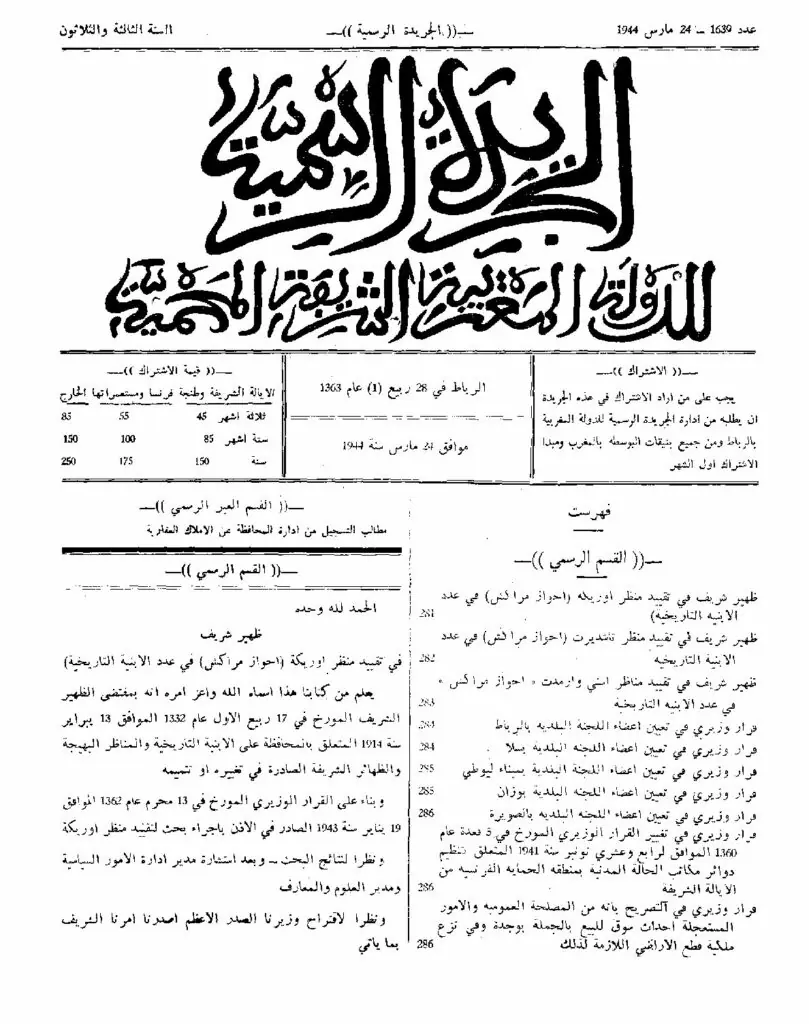 عدد 1639 — 24 مارس 1944
—(( الجريدة الرسمية ))—
السنة الثالثة والثلاثون
الجريدة الرسمية
للدولة المغربية الشريفة المحمية
—(( الاشتراك ))—
يجب على من اراد الاشتراك في هذه الجريدة
ان يطلبه من ادارة الجريدة الرسمية للدولة المغربية
بالرباط ومن جميع بنيقات البوسطه بالمغرب ومبدا
الاشتراك اول الشهر
الرباط في 28 ربيع (1) عام 1363
موافق 24 مارس سنة 1944
—(( قيمة الاشتراك ))—
الايالة الشريفة وطنجة فرنسا ومستعمراتها الخارج
ثلاثة اشهر 45 55 85
ستة اشهر 85 100 150
سنة 150 175 250
فهرست
—(( القسم الرسمي ))—
ظهير شريف في تقييد منظر اوريكة (احواز مراكش) في عدد
الابنية التاريخية) 281
ظهير شريف في تقييد منظر تاغديرت (احواز مراكش) في عدد
الابنية التاريخية 282
ظهير شريف في تقييد مناظر اسني وارمدت « احواز مراكش »
في عدد الابنية التاريخية 283
قرار وزيري في تعيين اعضاء اللجنة البلدية بالرباط 284
قرار وزيري في تعيين اعضاء اللجنة البلدية بسلا 284
قرار وزيري في تعيين اعضاء اللجنة البلدية بميناء ليوطي 285
قرار وزيري في تعيين اعضاء اللجنة البلدية بوزان 285
قرار وزيري في تعيين اعضاء اللجنة البلدية بالصويرة 286
قرار وزيري في تغيير القرار الوزيري المورخ في 5 قعدة عام
1360 الموافق لرابع وعشري نونبر سنة 1941 المتعلق بتنظيم
دوائر مكاتب الحالة المدنية بمنطقه الحمايه الفرنسيه من
الايالة الشريفة 286
قرار وزيري في التصريح بانه من المصلحة العموميه والامور
المستعجلة احداث سوق للبيع بالجملة بوجدة وفي نزع
ملكية قطع الاراضي اللازمة لذلك 286
—(( القسم الغير الرسمي ))—
مطالب التسجيل من ادارة المحافظة عن الاملاك العقارية
—(( القسم الرسمي ))—
الحمد لله وحده
ظهير شريف
في تقييد منظر اوريكة (احواز مراكش) في عدد الابنية التاريخية)
يعلم من كتابنا هذا اسماه الله واعز امره انه بمقتضى الظهير
الشريف المورخ في 17 ربيع الاول عام 1332 الموافق 13 يبراير
سنة 1914 المتعلق بالمحافظة على الابنية التاريخية والمناظر البهيجة
والظهائر الشريفة الصادرة في تغييره او تتميمه
وبناء على القرار الوزيري المورخ في 13 محرم عام 1362 الموافق
19 يناير سنة 1943 الصادر في الاذن باجراء بحث لتقييد منظر اوريكة
ونظرا لنتائج البحث — وبعد استشارة مدير ادارة الامور السياسية
ومدير العلوم والمعارف
ونظرا لاقتراح وزيرنا الصدر الاعظم اصدرنا امرنا الشريف
بما ياتي